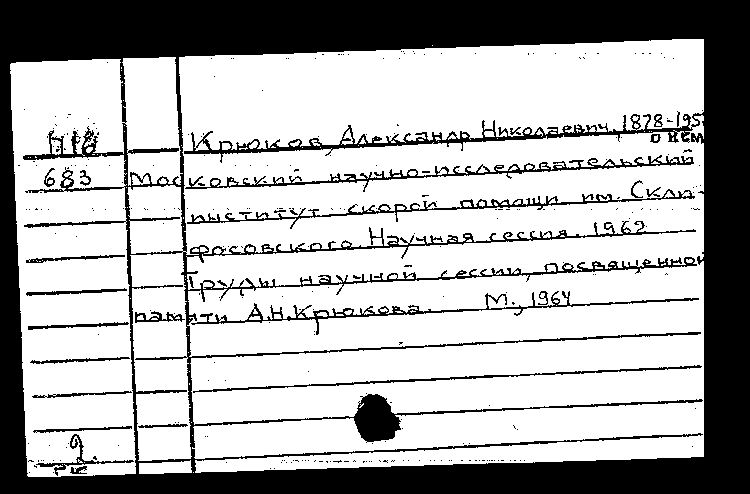 П18 Крюков, Александр Николаевич, 1878-195
о нем
683 Московский научно-исследовательский
институт скорой помощи им. Скли-
фосовского. Научная сессия. 1962
Труды научной сессии, посвященной
памяти А.Н.Крюкова. М., 1964
2.